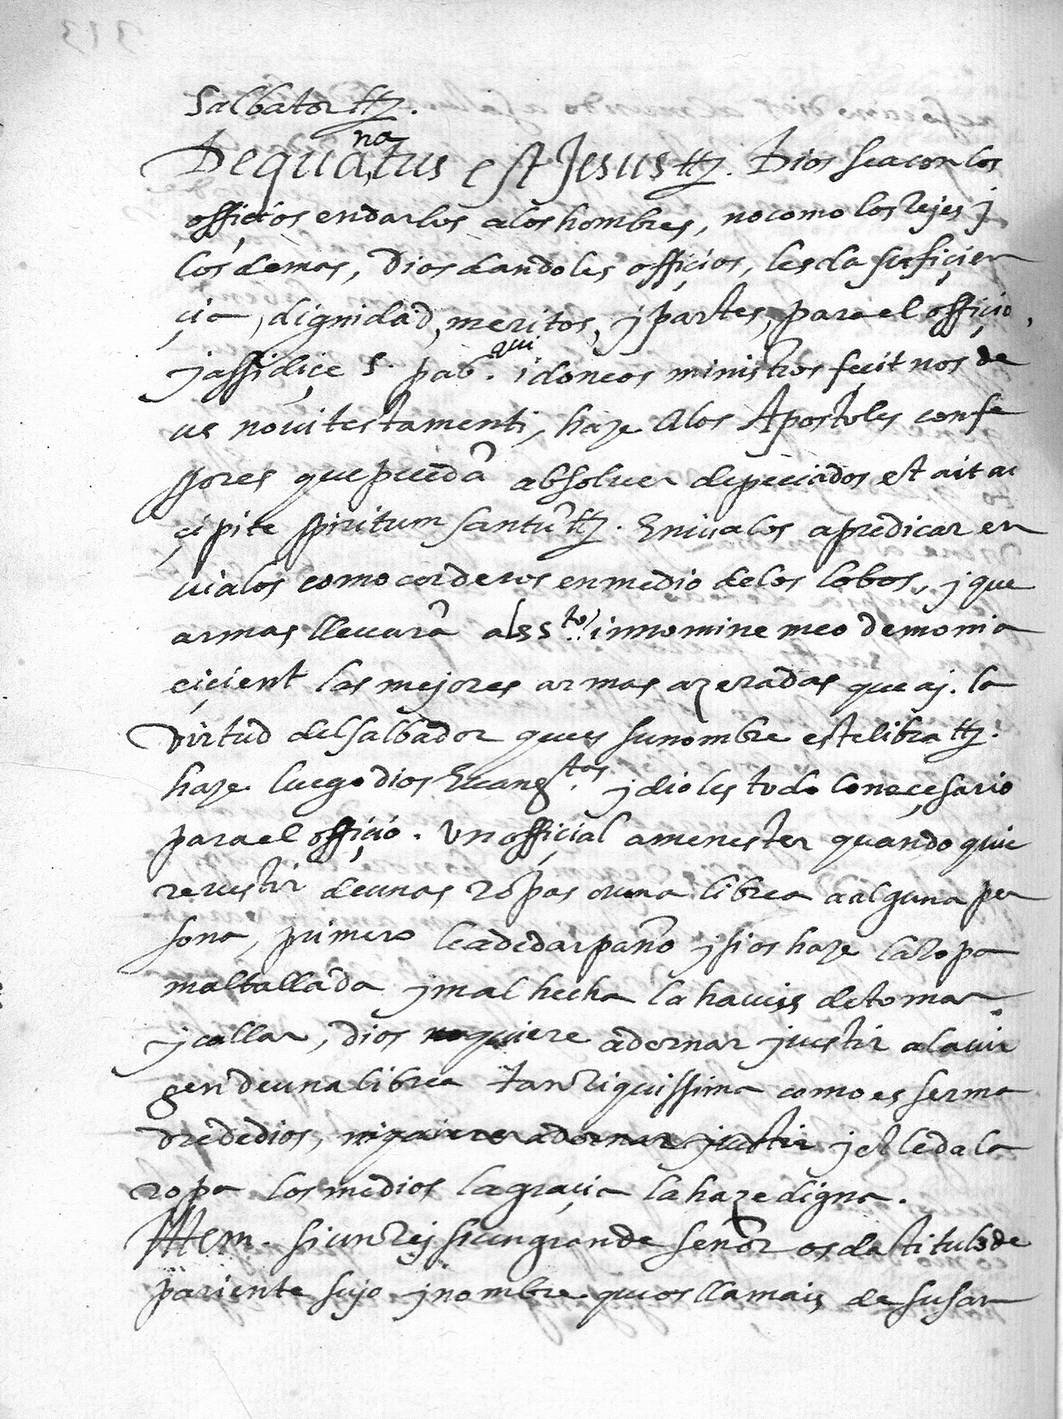 Salbator etz.
De qua natus est Jesus etz. Dios sea con los
offiçios en darlos a los hombres, no como los rejes j
los demas, Dios dandoles offiçios, les da sufiçien
çia, dignidad, meritos, j partes, para el offiçio,
j assi diçe S. pab. qui idoneos ministros feçit nos de
us noui testamenti, haze a los Apostoles confe
ssores que puedã absoluer de peccados et ait ac
çipite spiritum santũ etz. Enuialos a predicar en
uialos como corderos en medio de los lobos, j que
armas lleuarã al ss.to in nomine meo demonia
eiçient las mejores armas azeradas que aj. la
virtud del salbador ques su nombre este libra etz.
haze luego dios Euang.tas j dioles todo lo neçesario
para el offiçio. Un offiçial a menester quando quie
re uestir de unas ropas o una librea a alguna per
sona, primero le a de dar paño j si os haze la ropa
mal tallada j mal hecha la haueis de tomar
j callar, Dios quiere adornar j uestir a la uir
gen de una librea tan riquissima como es ser ma
dre de dios, j el le da la
ropa los medios la graçia la haze digna.
Ittem. si un rej si un grande señor os da titulo de
pariente sujo j nombre que os llamais de su san